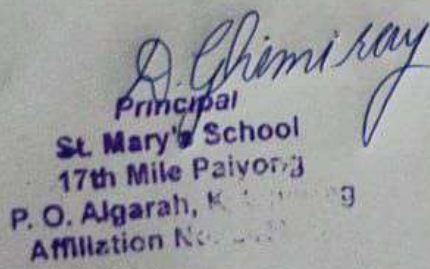 D. Ghimiray
Principal
St. Mary's School
17th Mile Paiyong
P. O. Algarah,
Affiliation